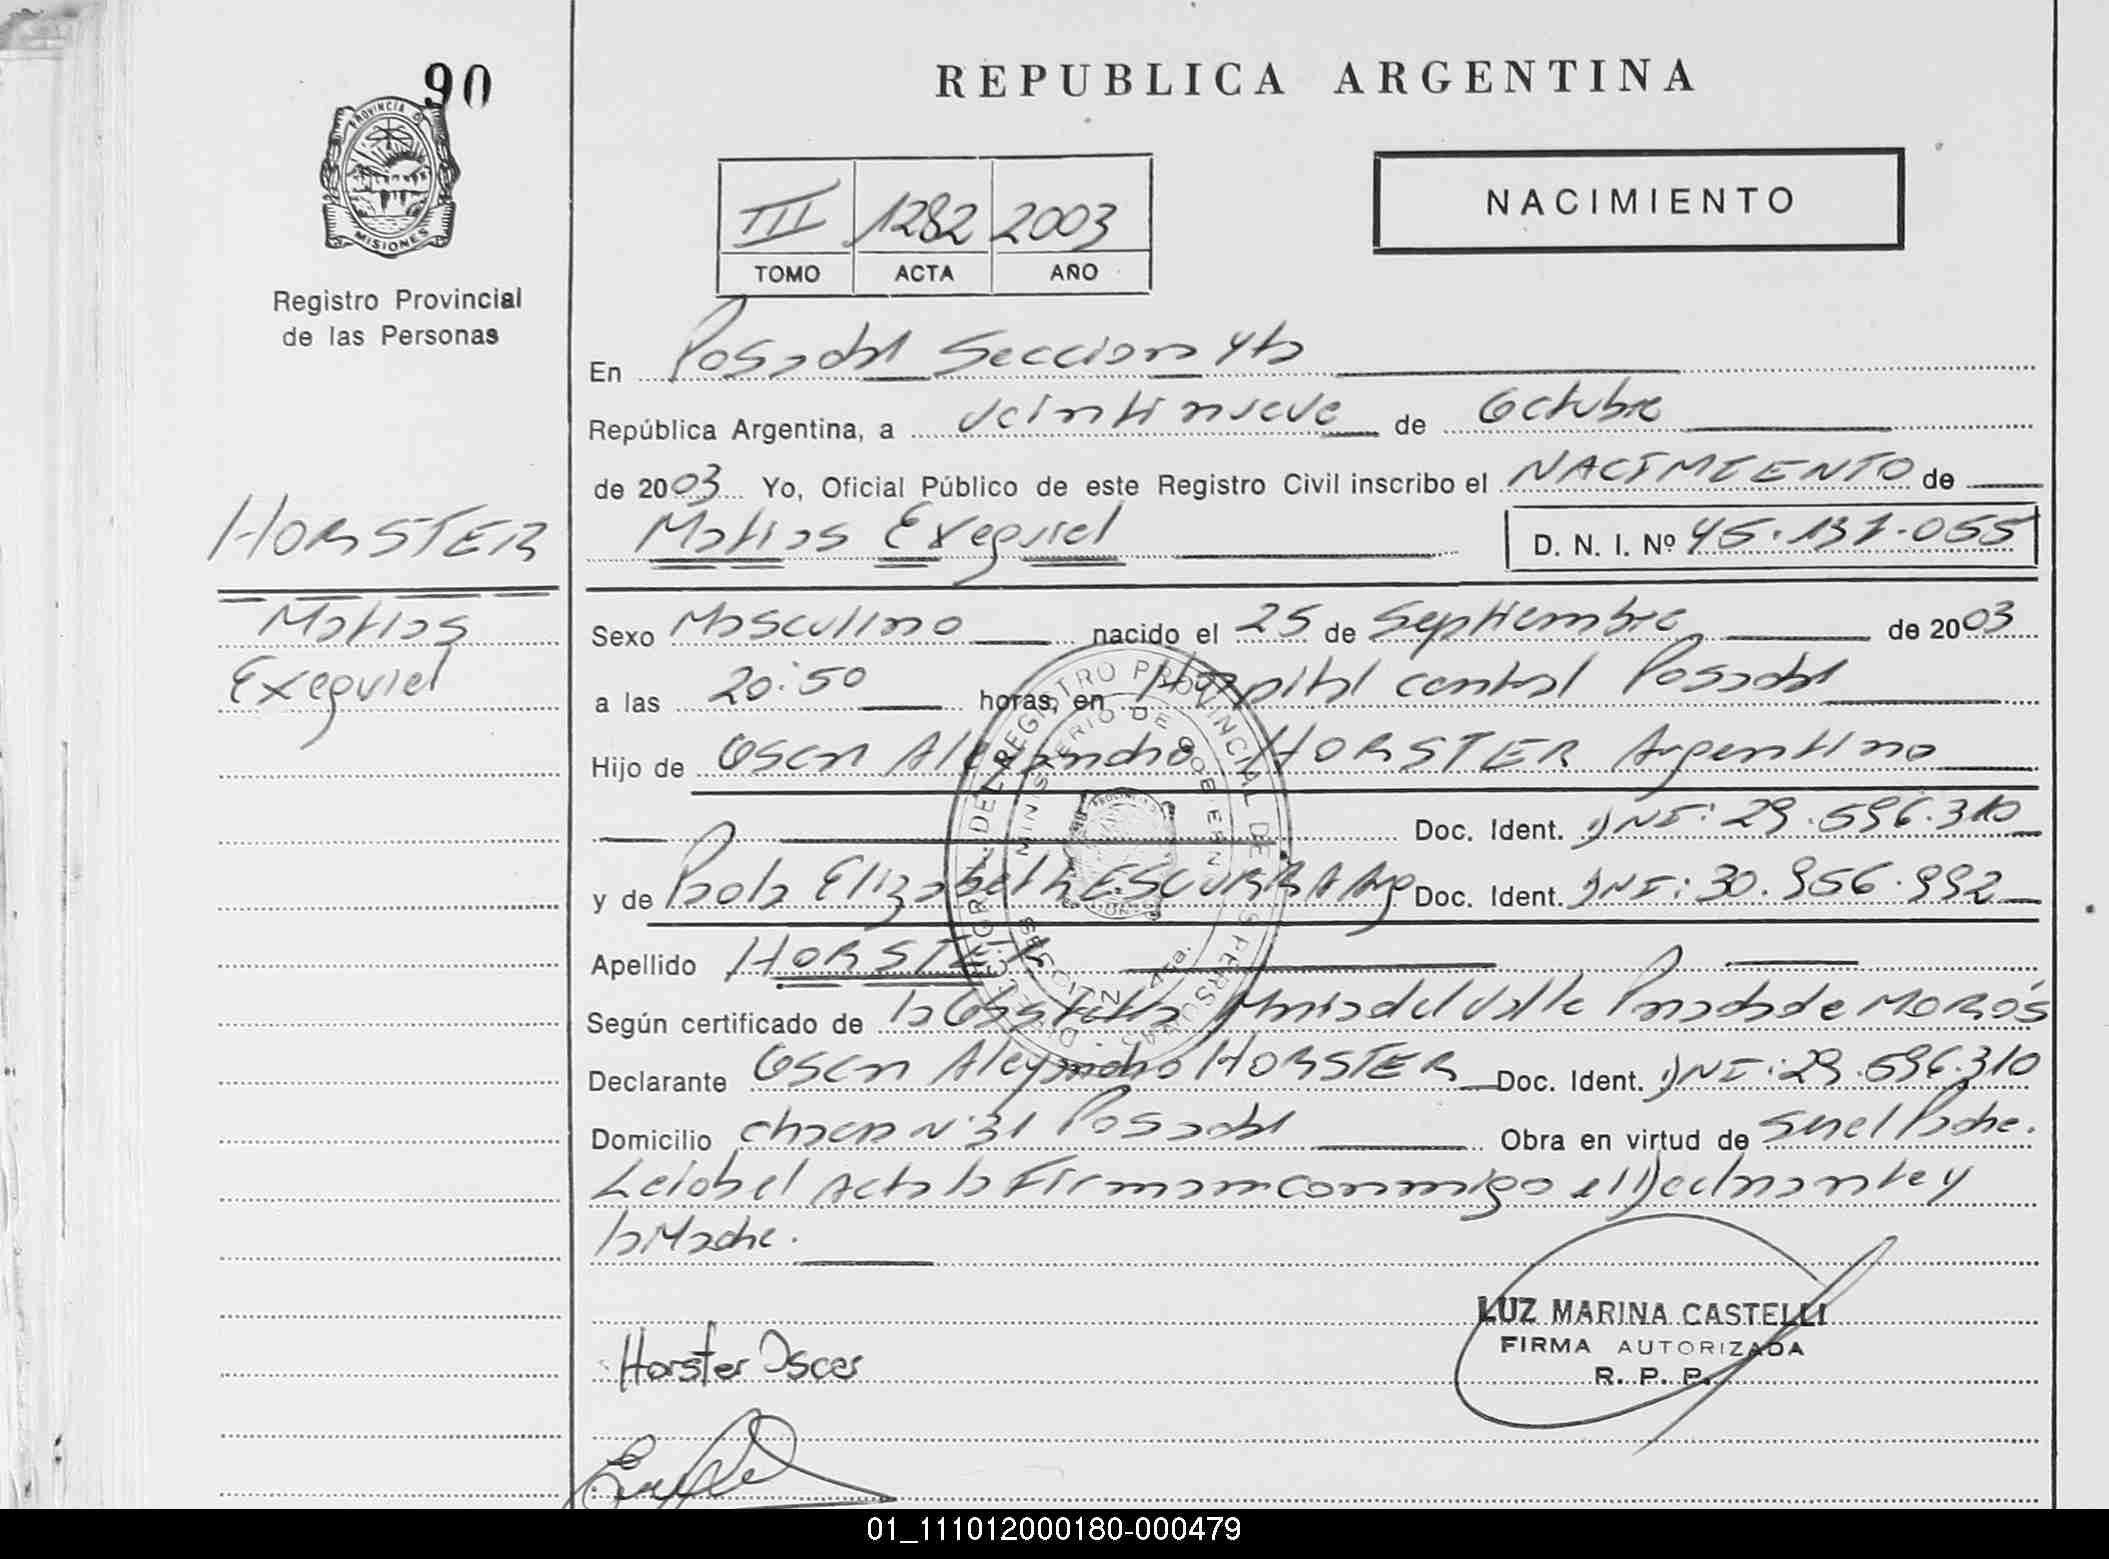 90
PROVINCIA DE
MISIONES
Registro Provincial
de las Personas
REPUBLICA ARGENTINA
NACIMIENTO
III 1282 2003
TOMO ACTA AÑO
En Posadas Seccion 4ta
República Argentina, a veintinueve de Octubre
de 2003 Yo, Oficial Público de este Registro Civil inscribo el NACIMIENTO de
Matias Exequiel D. N. I. Nº 45.137.055
HORSTER
Matias
Exequiel
Sexo Masculino nacido el 25 de Septiembre de 2003
a las 20:50 horas, en Hospital central Posadas
Hijo de Oscar Alejandro HORSTER Argentino
Doc. Ident. DNI: 29.596.310
y de Paola Elizabeth ESCURRA Arg Doc. Ident. DNI: 30.956.992
Apellido HORSTER
Según certificado de la Obstetra Maria del Valle Posadas de MOROS
Declarante Oscar Alejandro HORSTER Doc. Ident. DNI: 29.596.310
Domicilio chacra Nº 31 Posadas Obra en virtud de ser el Padre.
Leida el Acta la Firman conmigo el Declarante y
la Madre.
DEL REGISTRO PROVINCIAL DE LAS PERSONAS
MINISTERIO DE GOBIERNO
SECCION 4ta.
LUZ MARINA CASTELLI
FIRMA AUTORIZADA
R. P. P.
Horster Oscar
01_111012000180-000479